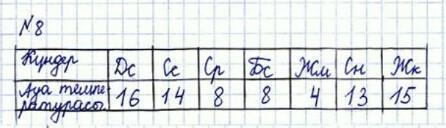 №8
Күндер Дс Сс Ср Бс Жм Сн Жк
Ауа темпе-
ратурасы 16 14 8 8 4 13 15